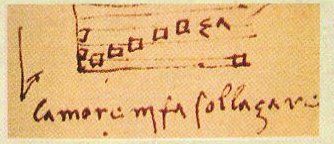 za
lamore mi fa sollazare